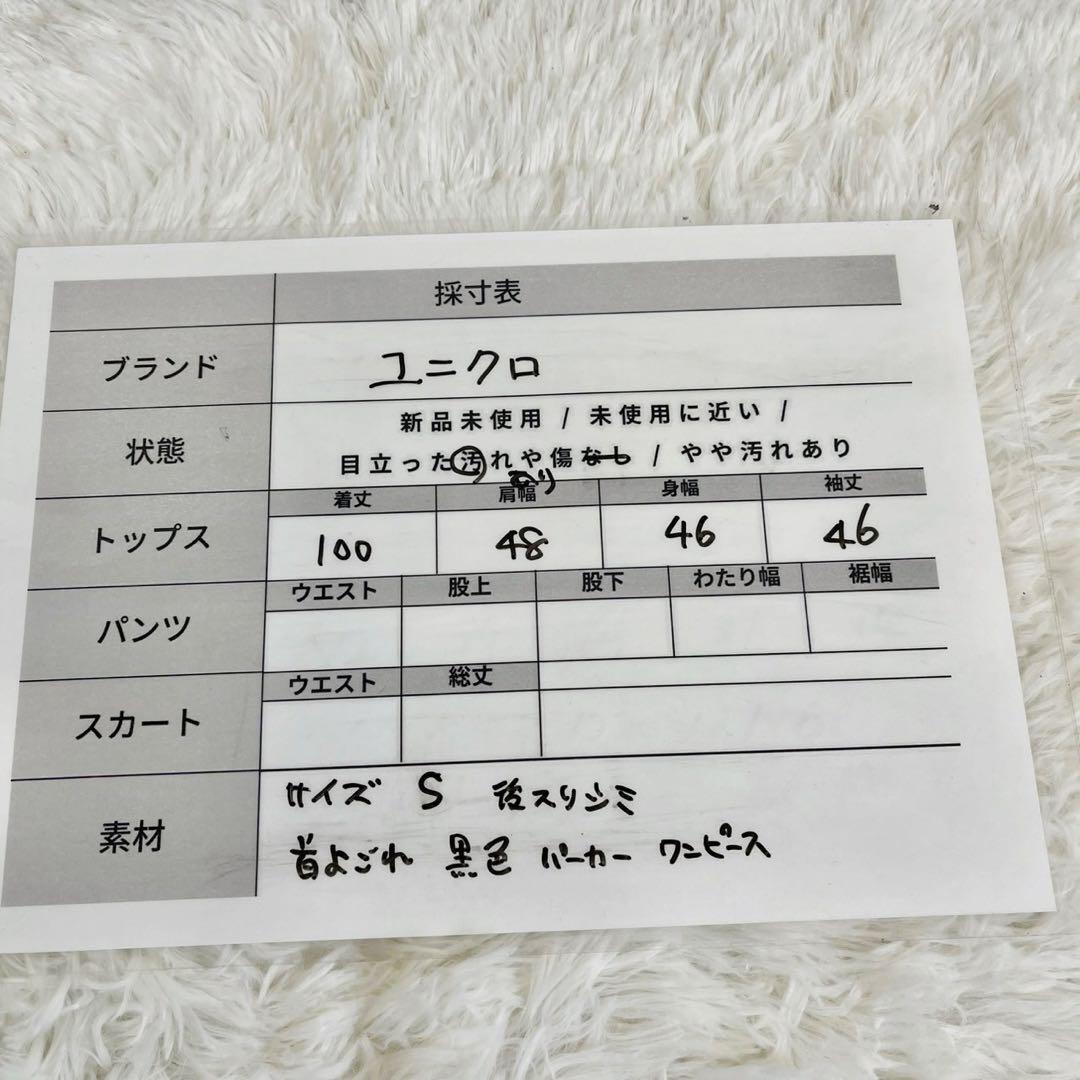 採寸表
ブランド ユニクロ
状態 新品未使用 / 未使用に近い /
目立った汚れや傷なし / やや汚れあり
あり
トップス 着丈 肩幅 身幅 袖丈
100 48 46 46
パンツ ウエスト 股上 股下 わたり幅 裾幅
スカート ウエスト 総丈
素材 サイズ S 後スリシミ
首よごれ 黒色 パーカー ワンピース